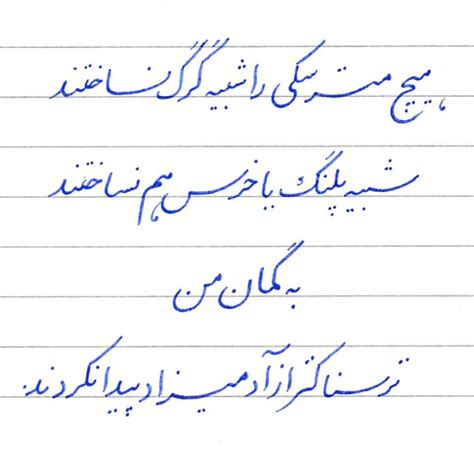 هیچ مترسکی را شبیه گرگ نساختند
شبیه پلنگ یا خرس هم نساختند
به گمان من
ترسناکتر از آدمیزاد پیدا نکردند.